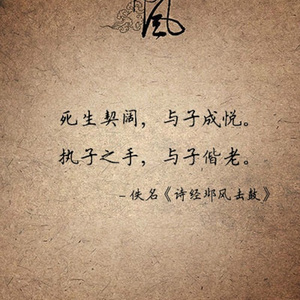 風
死生契阔，与子成悦。
执子之手，与子偕老。
-佚名《诗经邶风击鼓》